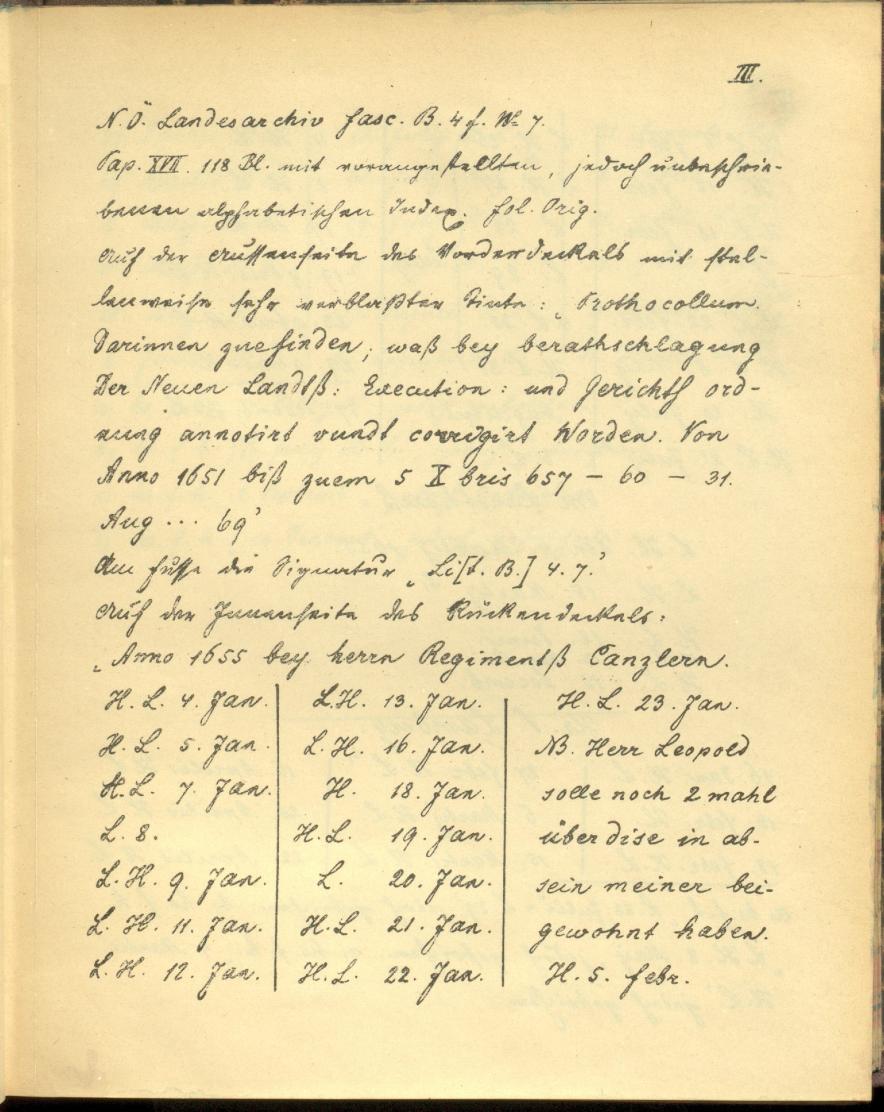 III.
N.Ö. Landesarchiv Fasc. B. 4 f. No 7.
Pap. XVII. 118 Bl. mit vorangestellten, jedoch unbeschrie-
benen alphabetischen Index. Fol. Orig.
Auf der Aussenseite des Vorderdeckels mit stel-
lenweise sehr verblaßter Tinte: „Prothocollum.
Darinnen zuefinden, waß bey berathschlagung
Der Neuen Landtß: Execution: und Gerichtß ord-
nung annotirt vundt corrigirt Worden. Von
Anno 1651 biß zuem 5 Xbris 657 – 60 – 31.
Aug ... 69'
Am Fusse die Signatur „Li[t. B.] 4. 7.'
Auf der Innenseite des Rückendeckels:
„Anno 1655 bey herrn Regimentß Canzlern.
H. L. 4. Jan. L.H. 13. Jan. H. L. 23. Jan.
H. L. 5. Jan. L.H. 16. Jan. NB. Herr Leopold
H.L. 7. Jan. H. 18. Jan. solle noch 2 mahl
L. 8. H.L. 19. Jan. über dise in ab-
L. H. 9. Jan. L. 20. Jan. sein meiner bei-
L. H. 11. Jan. H.L. 21. Jan. gewohnt haben.
L. H. 12. Jan. H.L. 22. Jan. H. 5. febr.